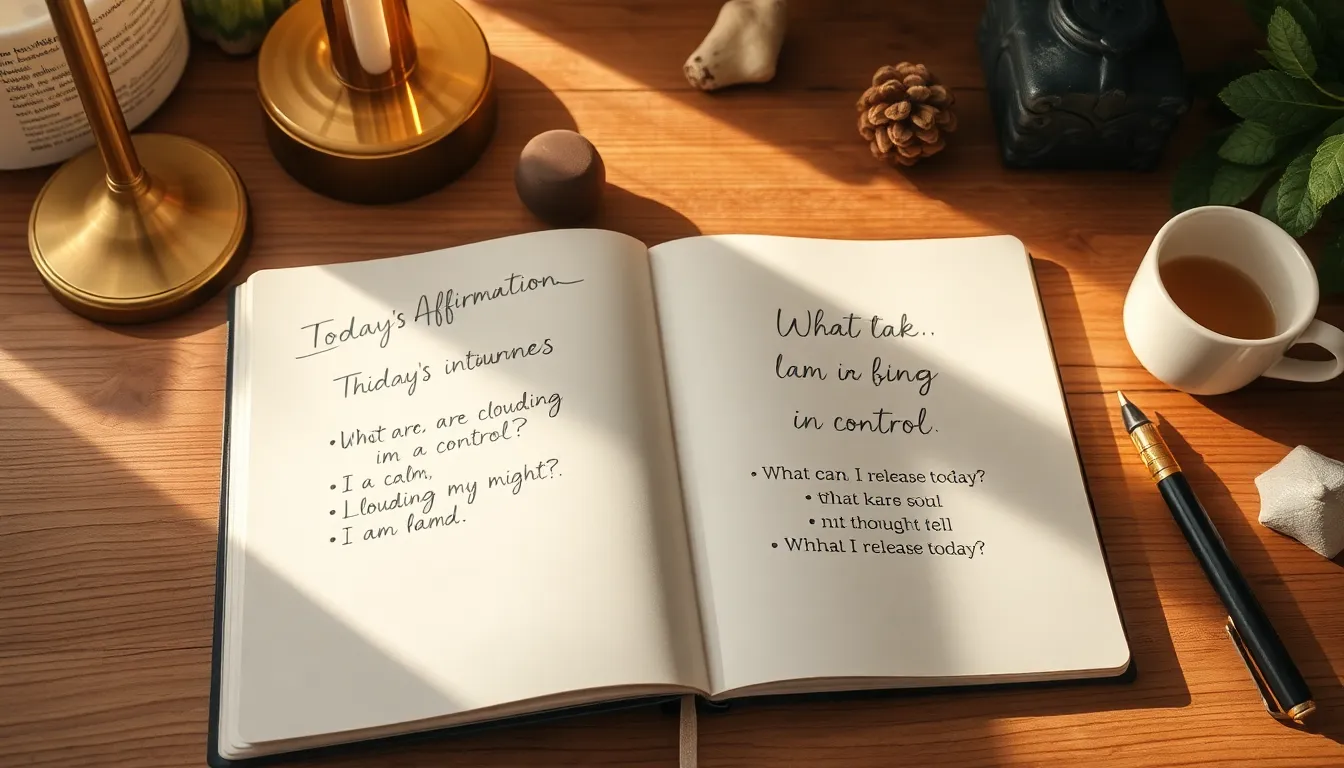 Today's Affirmation
Thiday's intournes
• What are, are clouding
im a control?
• I a calm,
• Llouding my might?.
• I am famd.
What tak..
lam in fing
in control.
• What can I release today?
• that kars soul
• nit thought tell
• Whhal I release today?